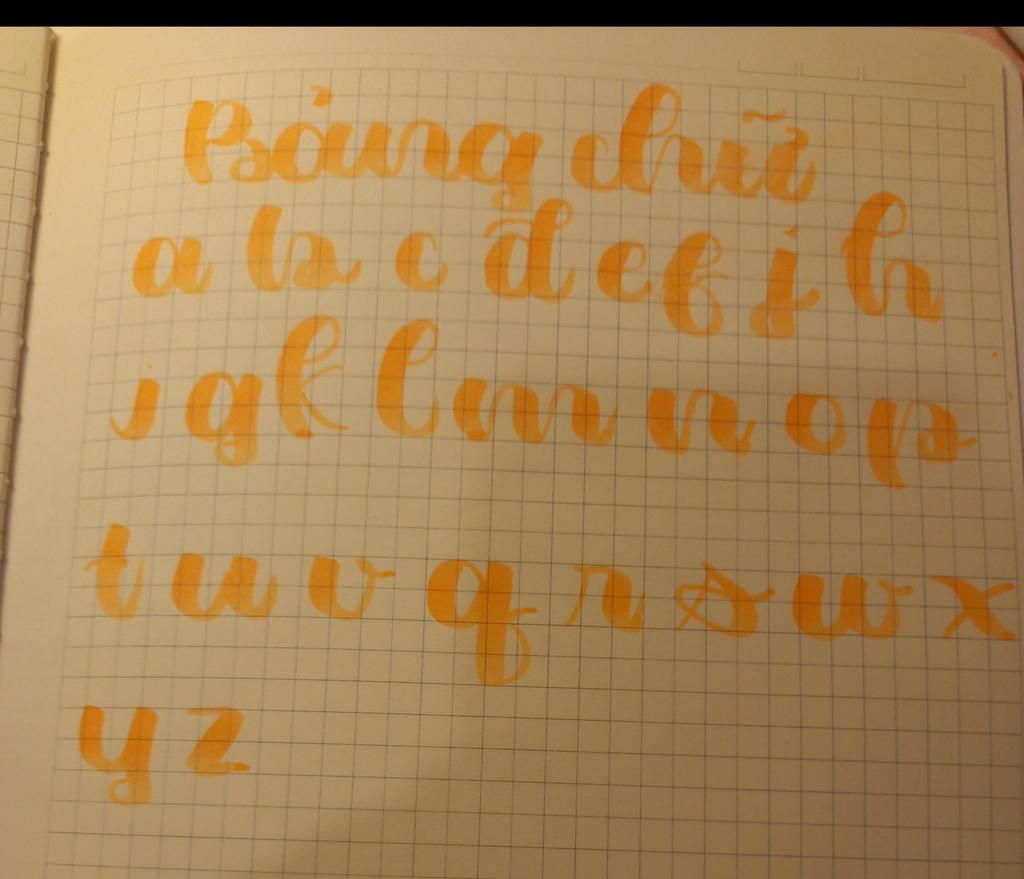 Bảng chữ
a b c d e f j h
i g k l m n o p
t u v q r s w x
y z